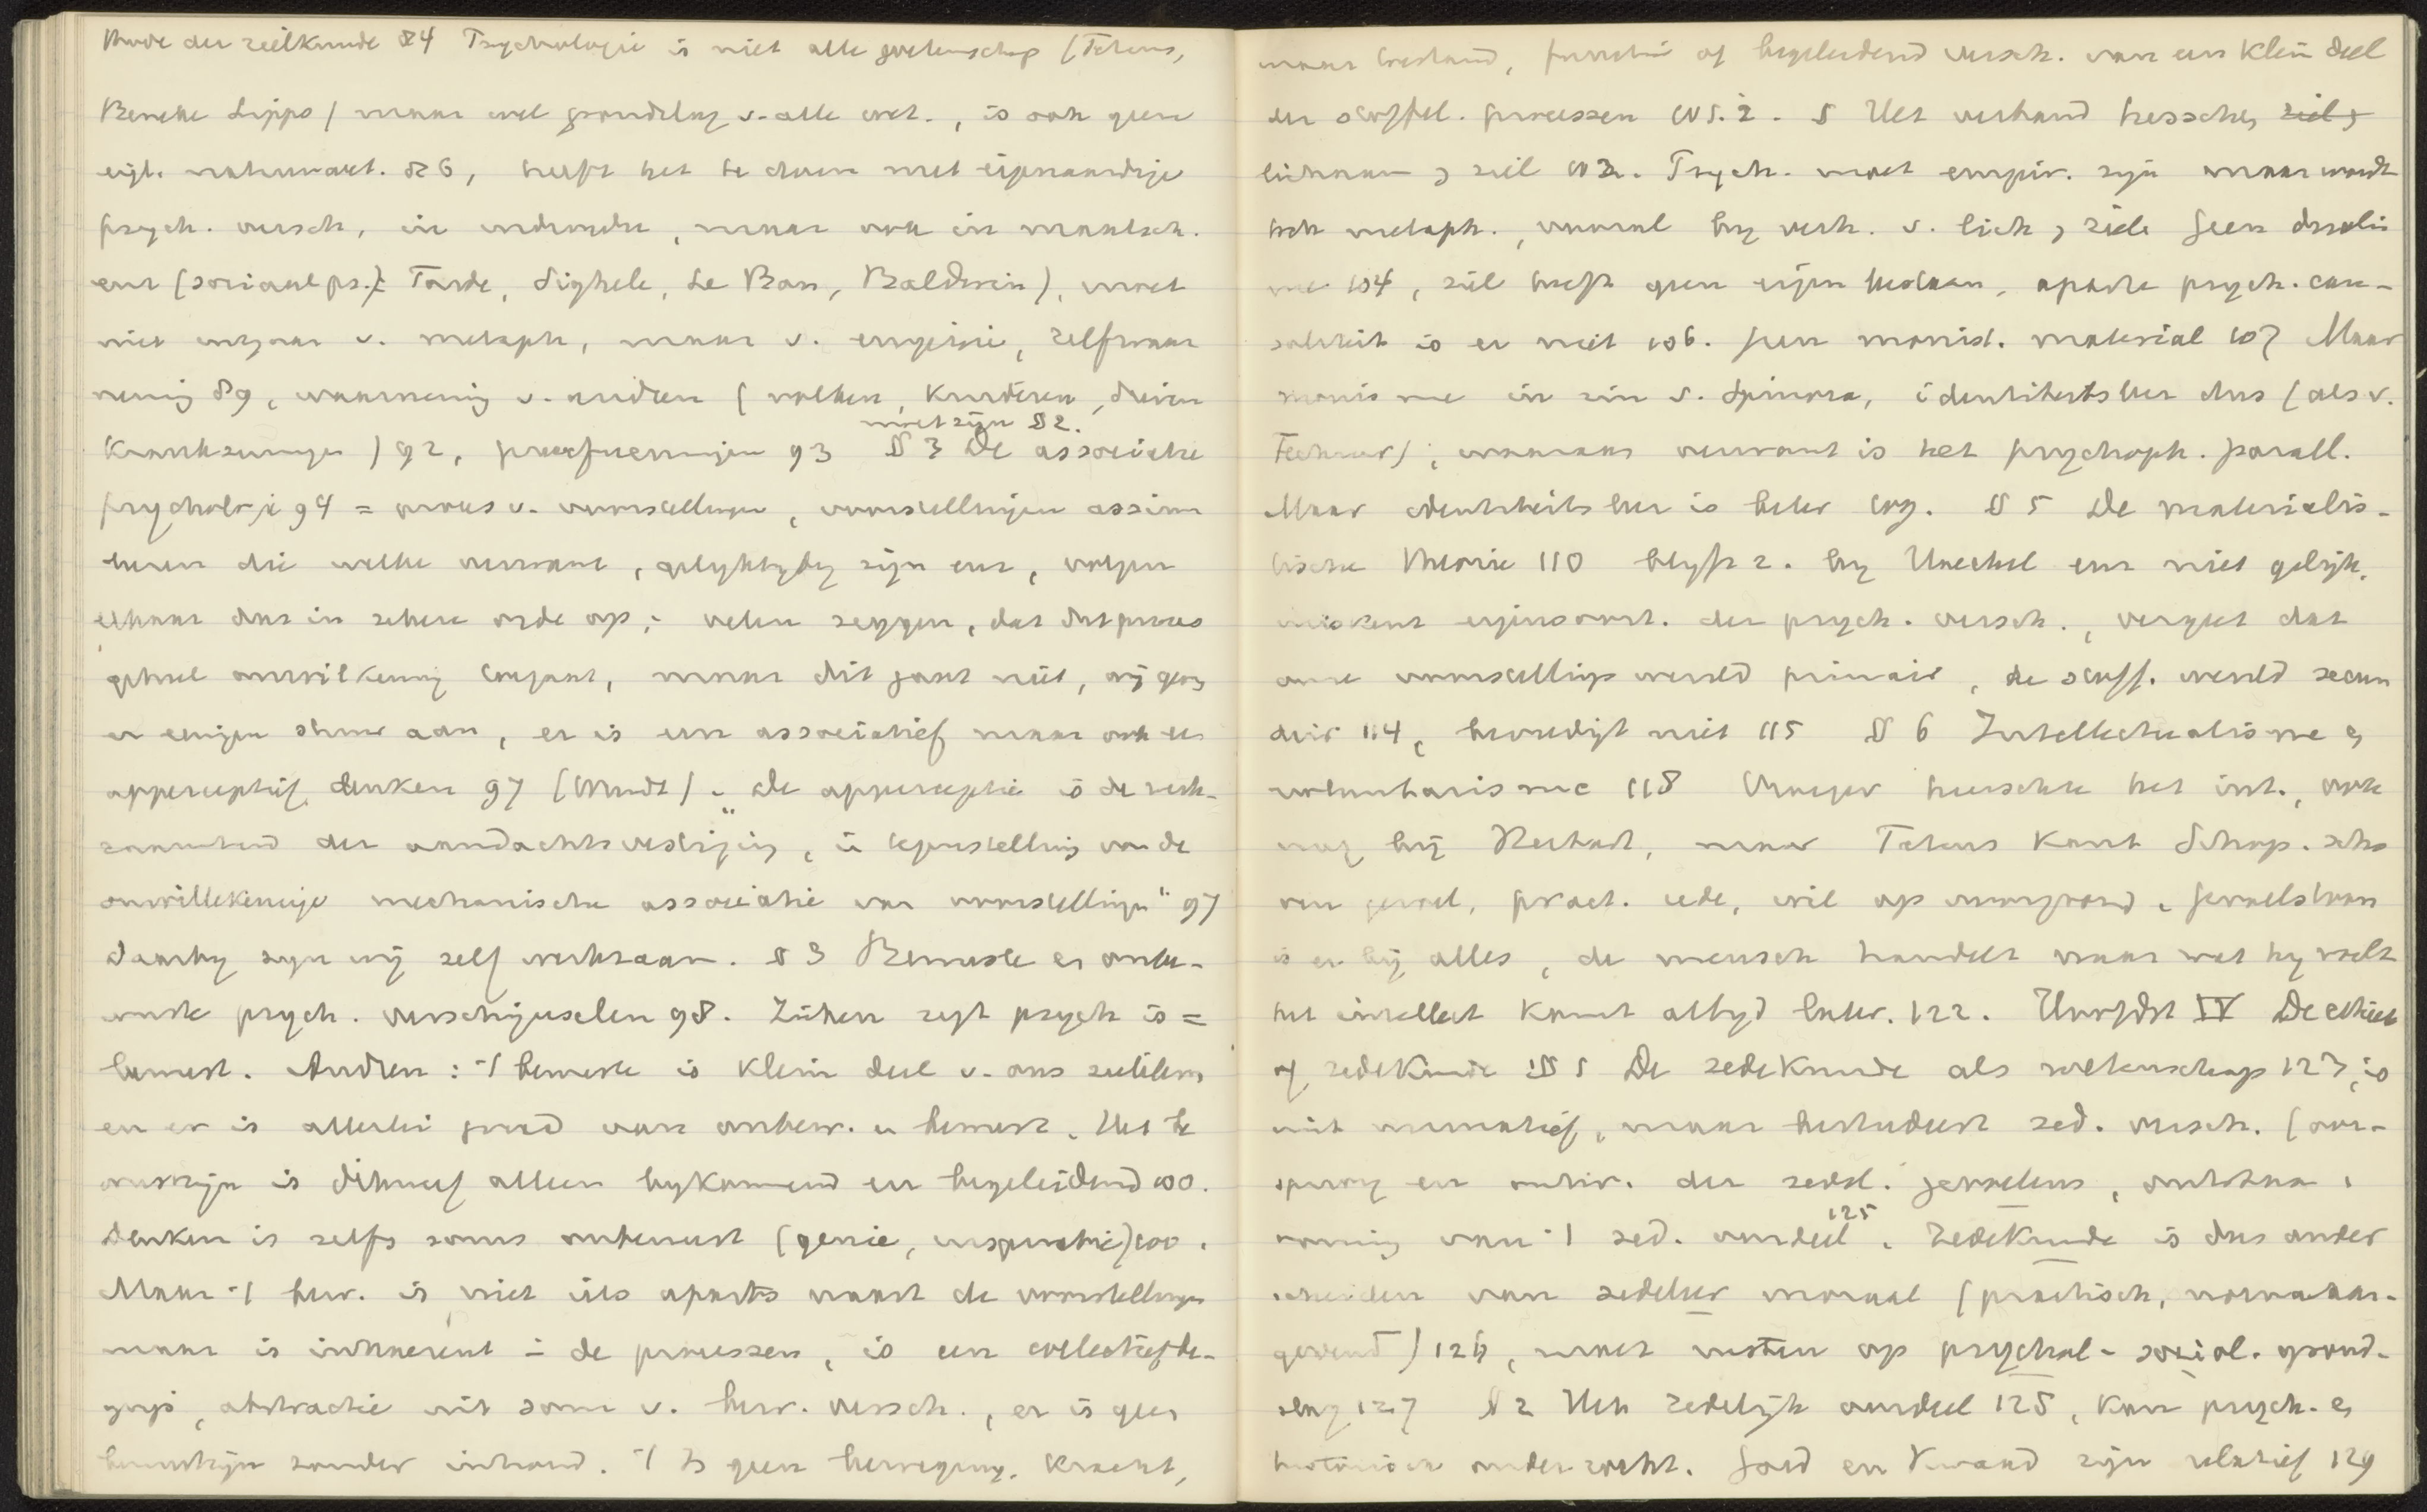 thode der zielkunde 84 Psychologie is niet alle wetenschap (Tetens,
Beneke Lipps) maar wel grondslag v. alle wet., is ook geen
eigl. natuurwet. 86, heeft het te doen met eigenaardige
psych. versch., in individu, maar ook in maatsch.
enz (sociaal ps.): Tarde, Sighele, Le Bon, Baldwin), moet
niet uitgaan v. metaph, maar v. empirie, zelfwaar
neming 89, waarneming v. andren (volken, kinderen, dieren
krankzinnigen) 92, proefnemingen 93 §3 De associatie
moet zijn §2.
psychologie 94 = proces v. voorstellingen, voorstellingen assim
leeren die welke verwant, gelyktydig zijn enz, volgen
elkaar dus in zekere orde op; velen zeggen, dat dit proces
geheel onwillkeurig toegaat, maar dit gaat niet, wij geven
er eenigen stuur aan, er is een associatief maar ook een
apperceptief denken 97 (Wundt). „De apperceptie is de werk-
zaamheid der aandachtsvestiging, in tegenstelling van de
onwillekeurige mechanische associatie van voorstellingen" 97
daarby zijn wij zelf werkzaam. §3 Bewuste en onbe-
wuste psych. verschijnselen 98. Ziehen zegt psych is =
bewust. Andren: 't bewuste is klein deel v. ons zieleleven
en er is allerlei graad van onbew. en bewust. Het be
wustzijn is dikwijls alleen bykomend en begeleidend 100.
Denken is zelfs soms onbewust (genie, inspiratie) 100.
Maar 't bew. is niet iets aparts naast de voorstellingen
maar is inhaerent in de processen, is een collectief be-
grip, abstractie uit som v. bew. versch., er is geen
bewustzijn zonder inhoud. 't Is geen beweging, kracht,
maar bestaand, functie of begeleidend versch. van een klein deel
der stoffel. processen 101.2. § Het verband tusschen ziel en
lichaam en ziel 103. Psych. moet empir. zijn maar wordt
toch metaph., vooral by verh. v. lich en ziele Geen dualis
me 104, ziel heeft geen eigen bestaan, aparte psych. cau-
saliteit is er niet 106. Geen monist. material 107 Maar
monisme in zin v. Spinoza, identiteitsleer dus (als v.
Fechner), waaraan verwant is het psychoph. parall.
Maar identiteitsleer is beter 109. §5 De materialis-
tische theorie 110 blijft z. by Haeckel enz niet gelijk,
miskent eigensoort. der psych. versch., vergeet dat
onze voorstellings wereld primair, de stoff. wereld secun
dair 114, bevredigt niet 115 §6 Intellectualisme en
voluntarisme 118 Vroeger heerschte het int., ook
nog bij Herbart, maar Tetens Kant Schop. schr
ven gevoel, pract. rede, wil op voorgrond. Gevoelstoon
is er bij alles, de mensch handelt naar wat hy voelt
het intellect komt altyd later. 122. Hoofdst IV De ethiek
of zedekunde §1 De zedekunde als wetenschap 123, is
niet normatief, maar bestudeert zed. versch. (oor-
sprong en ontw. der zedel. gevoelens, ontstaan,
vorming van 't zed. oordeel 125. Zedekunde is dus onder
scheiden van zedeleer moraal (practisch, normaan-
gevend) 126, moet rusten op psychol. sociol. grond-
slag 127 §2 Het zedelijk oordeel 128, kan psych. en
historisch onderzocht. Goed en kwaad zijn relatief 129